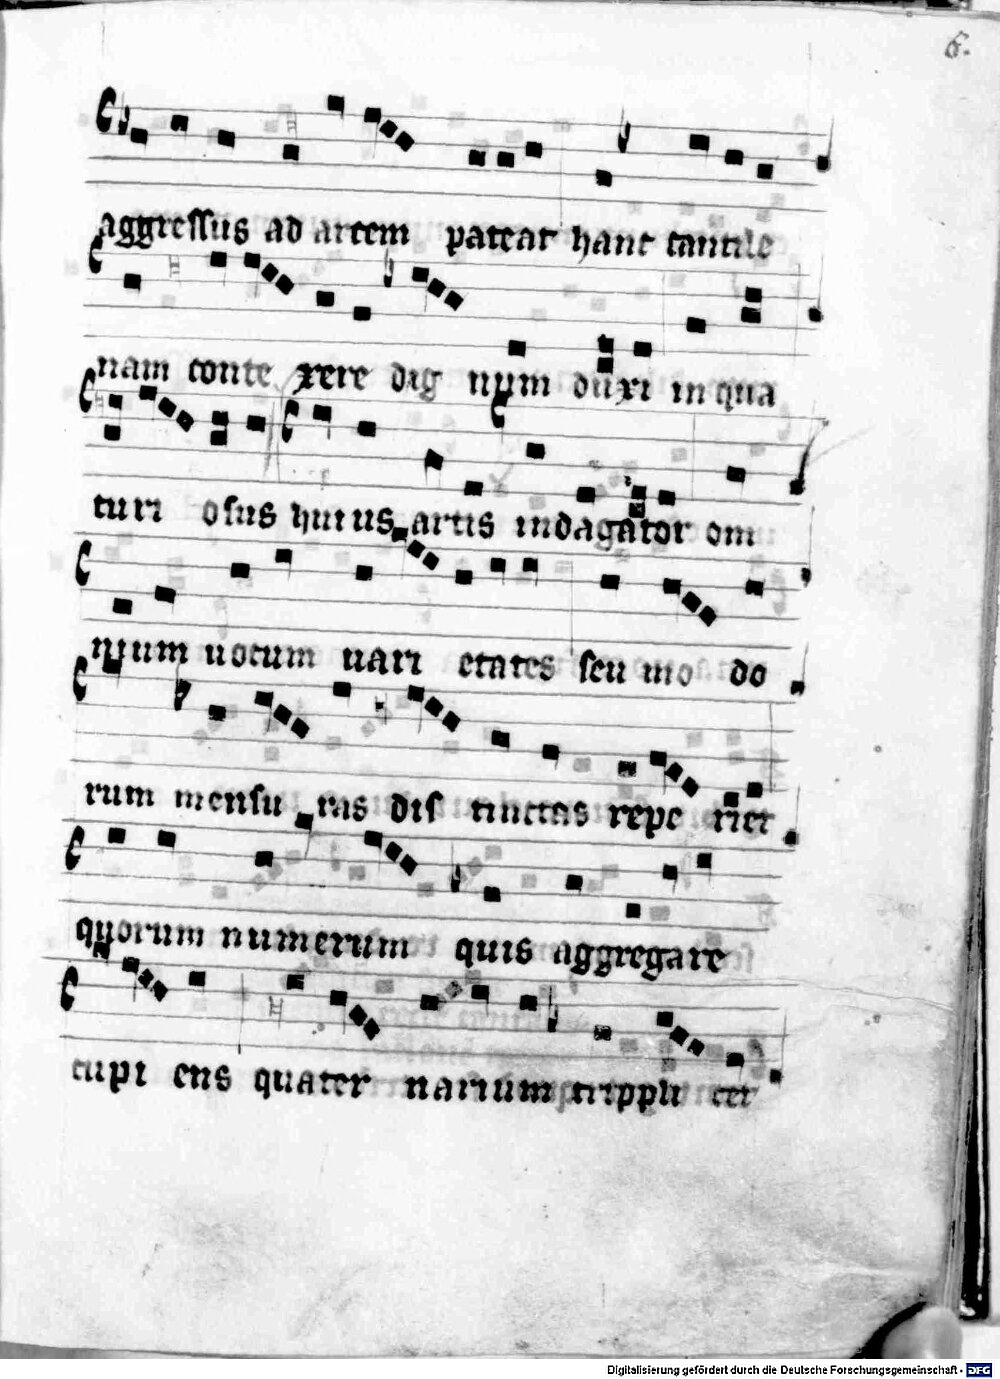 6.
aggressus ad artem pateat hanc cantile
nam conte xere dig num duxi in qua
turi osus huius artis indagator om
nium uocum uari etates seu mo do
rum mensu ras dis tinctas repe riet
quorum numerum quis aggregare
cupi ens quater narium trippli cet
Digitalisierung gefördert durch die Deutsche Forschungsgemeinschaft - DFG